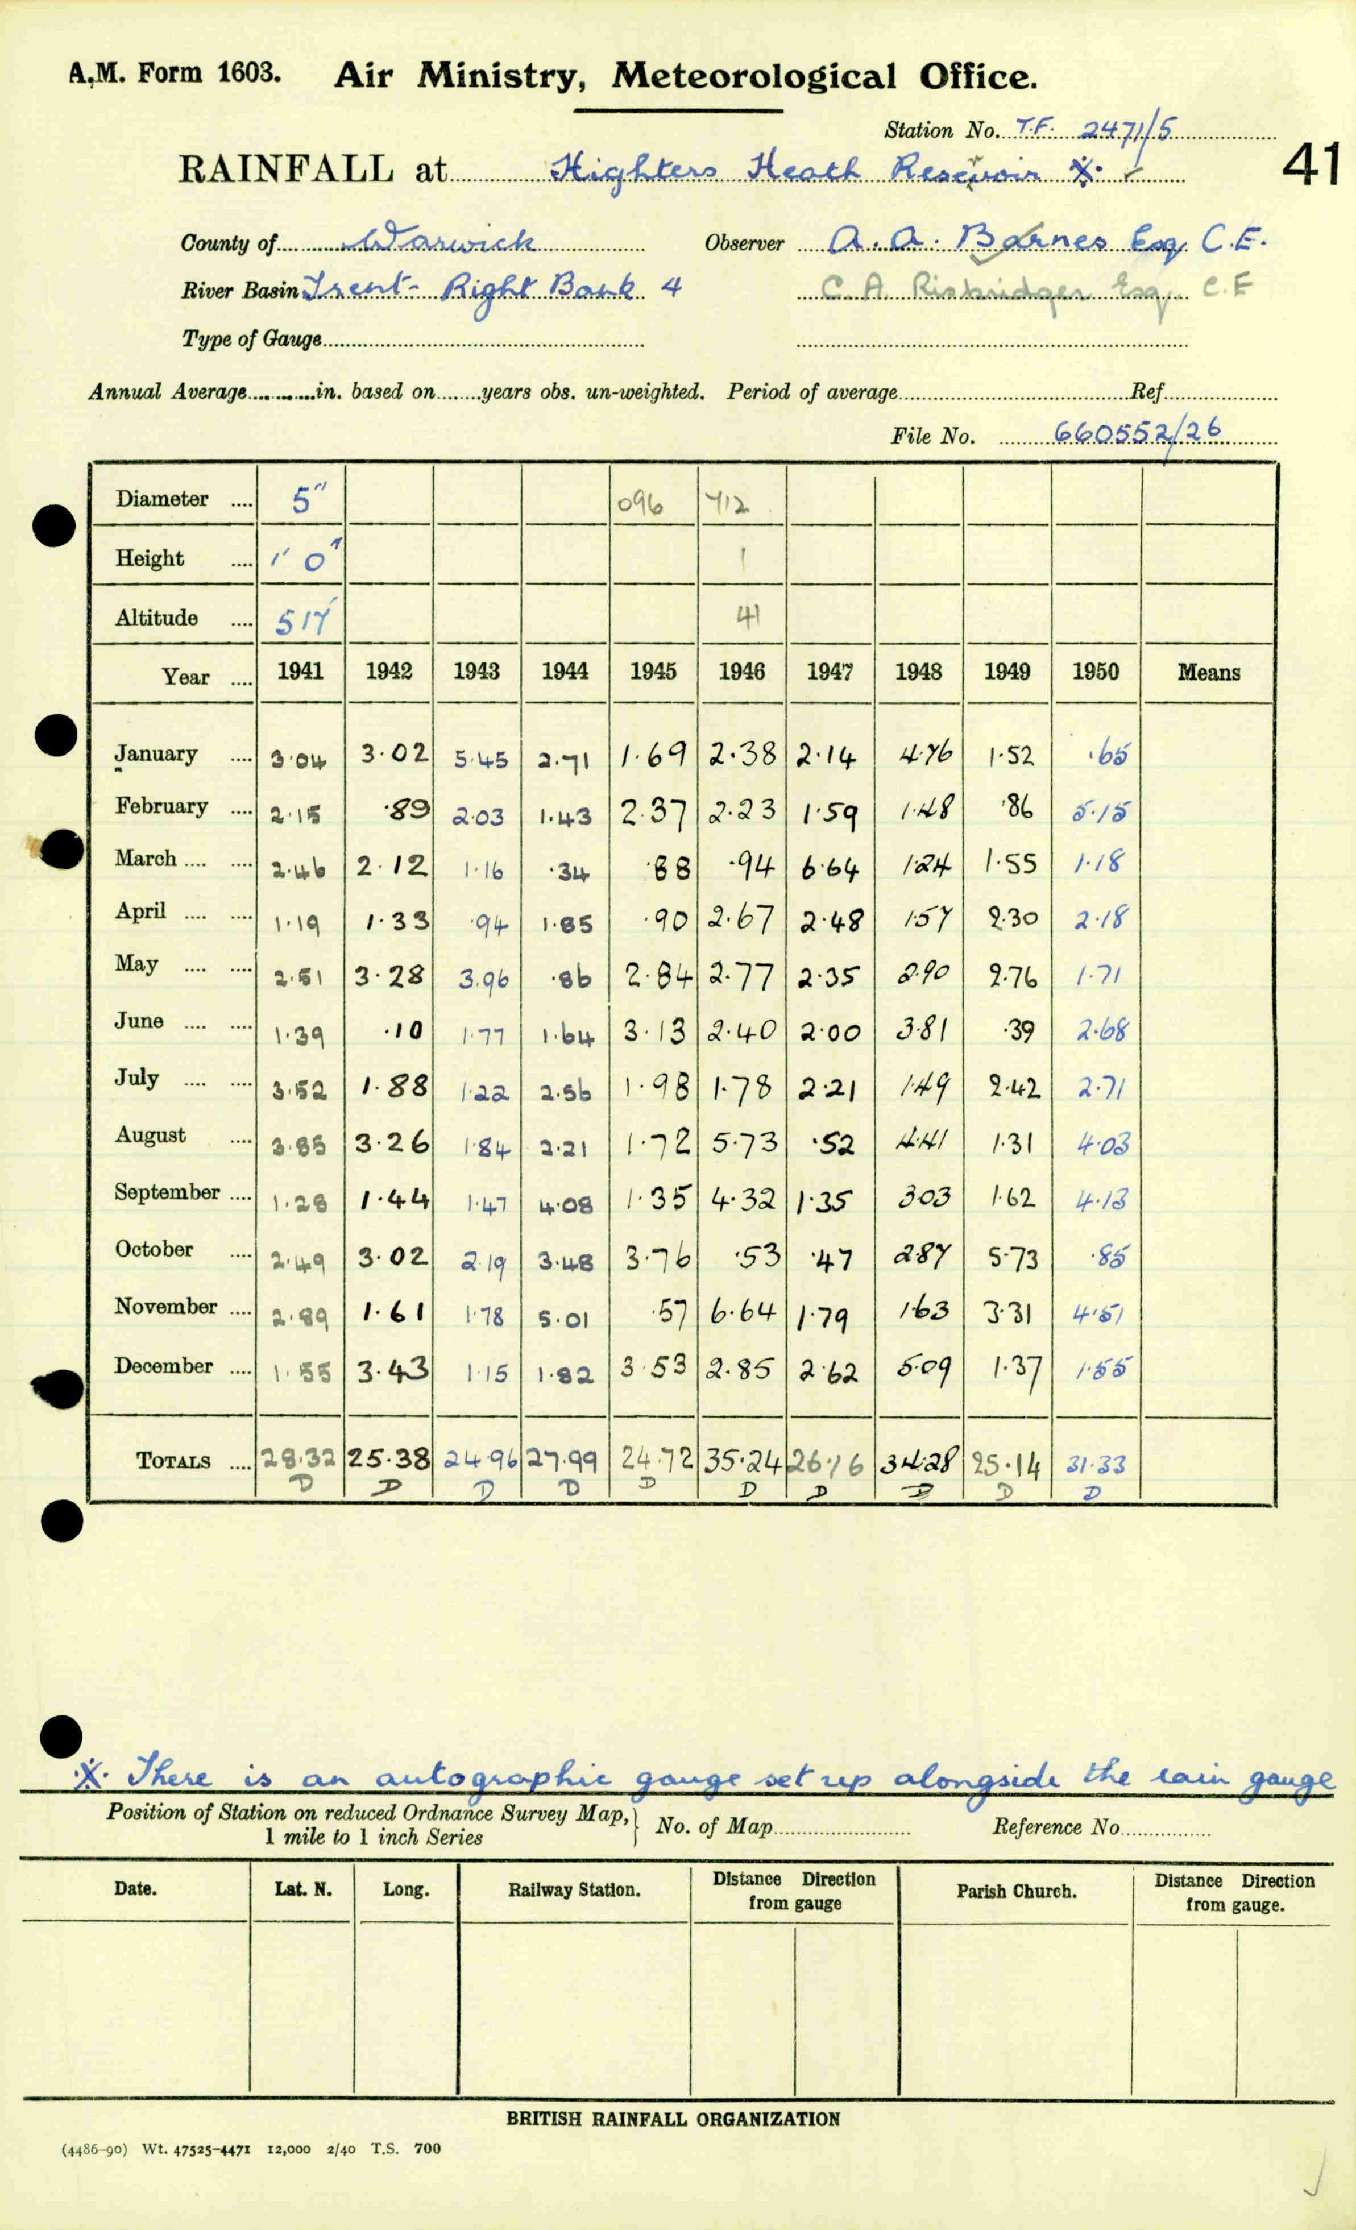 A.M. Form 1603. Air Ministry, Meteorological Office.
Station No. T.F. 2471/5
RAINFALL at Highters Heath Reservoir ※ ✓
41
County of Warwick Observer A. A. Barnes Esq. C.E.
River Basin Trent- Right Bank 4 C. A. Risbridger Esq. C.E
Type of Gauge
Annual Average in. based on years obs. un-weighted. Period of average Ref
File No. 660552/26
Diameter .... 5" 096 712
Height .... 1' 0" 1
Altitude .... 517' 41
Year .... 1941 1942 1943 1944 1945 1946 1947 1948 1949 1950 Means
January .... 3·04 3·02 5·45 2·71 1·69 2·38 2·14 4·76 1·52 ·65
February .... 2·15 ·89 2·03 1·43 2·37 2·23 1·59 1·48 ·86 5·15
March .... .... 2·46 2·12 1·16 ·34 ·88 ·94 6·64 1·24 1·55 1·18
April .... .... 1·19 1·33 ·94 1·85 ·90 2·67 2·48 1·57 2·30 2·18
May .... .... 2·51 3·28 3·96 ·86 2·84 2·77 2·35 2·90 2·76 1·71
June .... .... 1·39 ·10 1·77 1·64 3·13 2·40 2·00 3·81 ·39 2·68
July .... .... 3·52 1·88 1·22 2·56 1·98 1·78 2·21 1·49 2·42 2·71
August .... 3·85 3·26 1·84 2·21 1·72 5·73 ·52 4·41 1·31 4·03
September .... 1·28 1·44 1·47 4·08 1·35 4·32 1·35 3·03 1·62 4·13
October .... 2·49 3·02 2·19 3·48 3·76 ·53 ·47 2·87 5·73 ·85
November .... 2·89 1·61 1·78 5·01 ·57 6·64 1·79 1·63 3·31 4·51
December .... 1·55 3·43 1·15 1·82 3·53 2·85 2·62 5·09 1·37 1·55
TOTALS .... 28·32 25·38 24·96 27·99 24·72 35·24 26·16 34·28 25·14 31·33
D D D D D D D D D D
※ There is an autographic gauge set up alongside the rain gauge
Position of Station on reduced Ordnance Survey Map, } No. of Map Reference No
1 mile to 1 inch Series
Date. Lat. N. Long. Railway Station. Distance Direction from gauge Parish Church. Distance Direction from gauge.
BRITISH RAINFALL ORGANIZATION
(4486-90) Wt. 47525-4471 12,000 2/40 T.S. 700